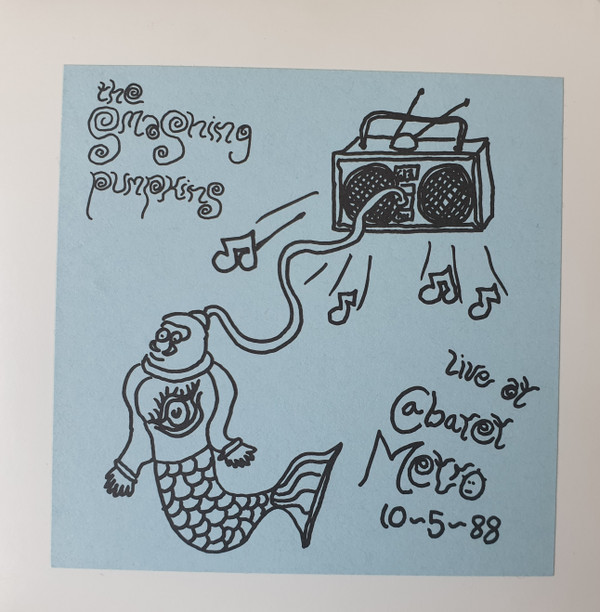 the
Smashing
pumpkins
live at
Cabaret
Metro
10-5-88